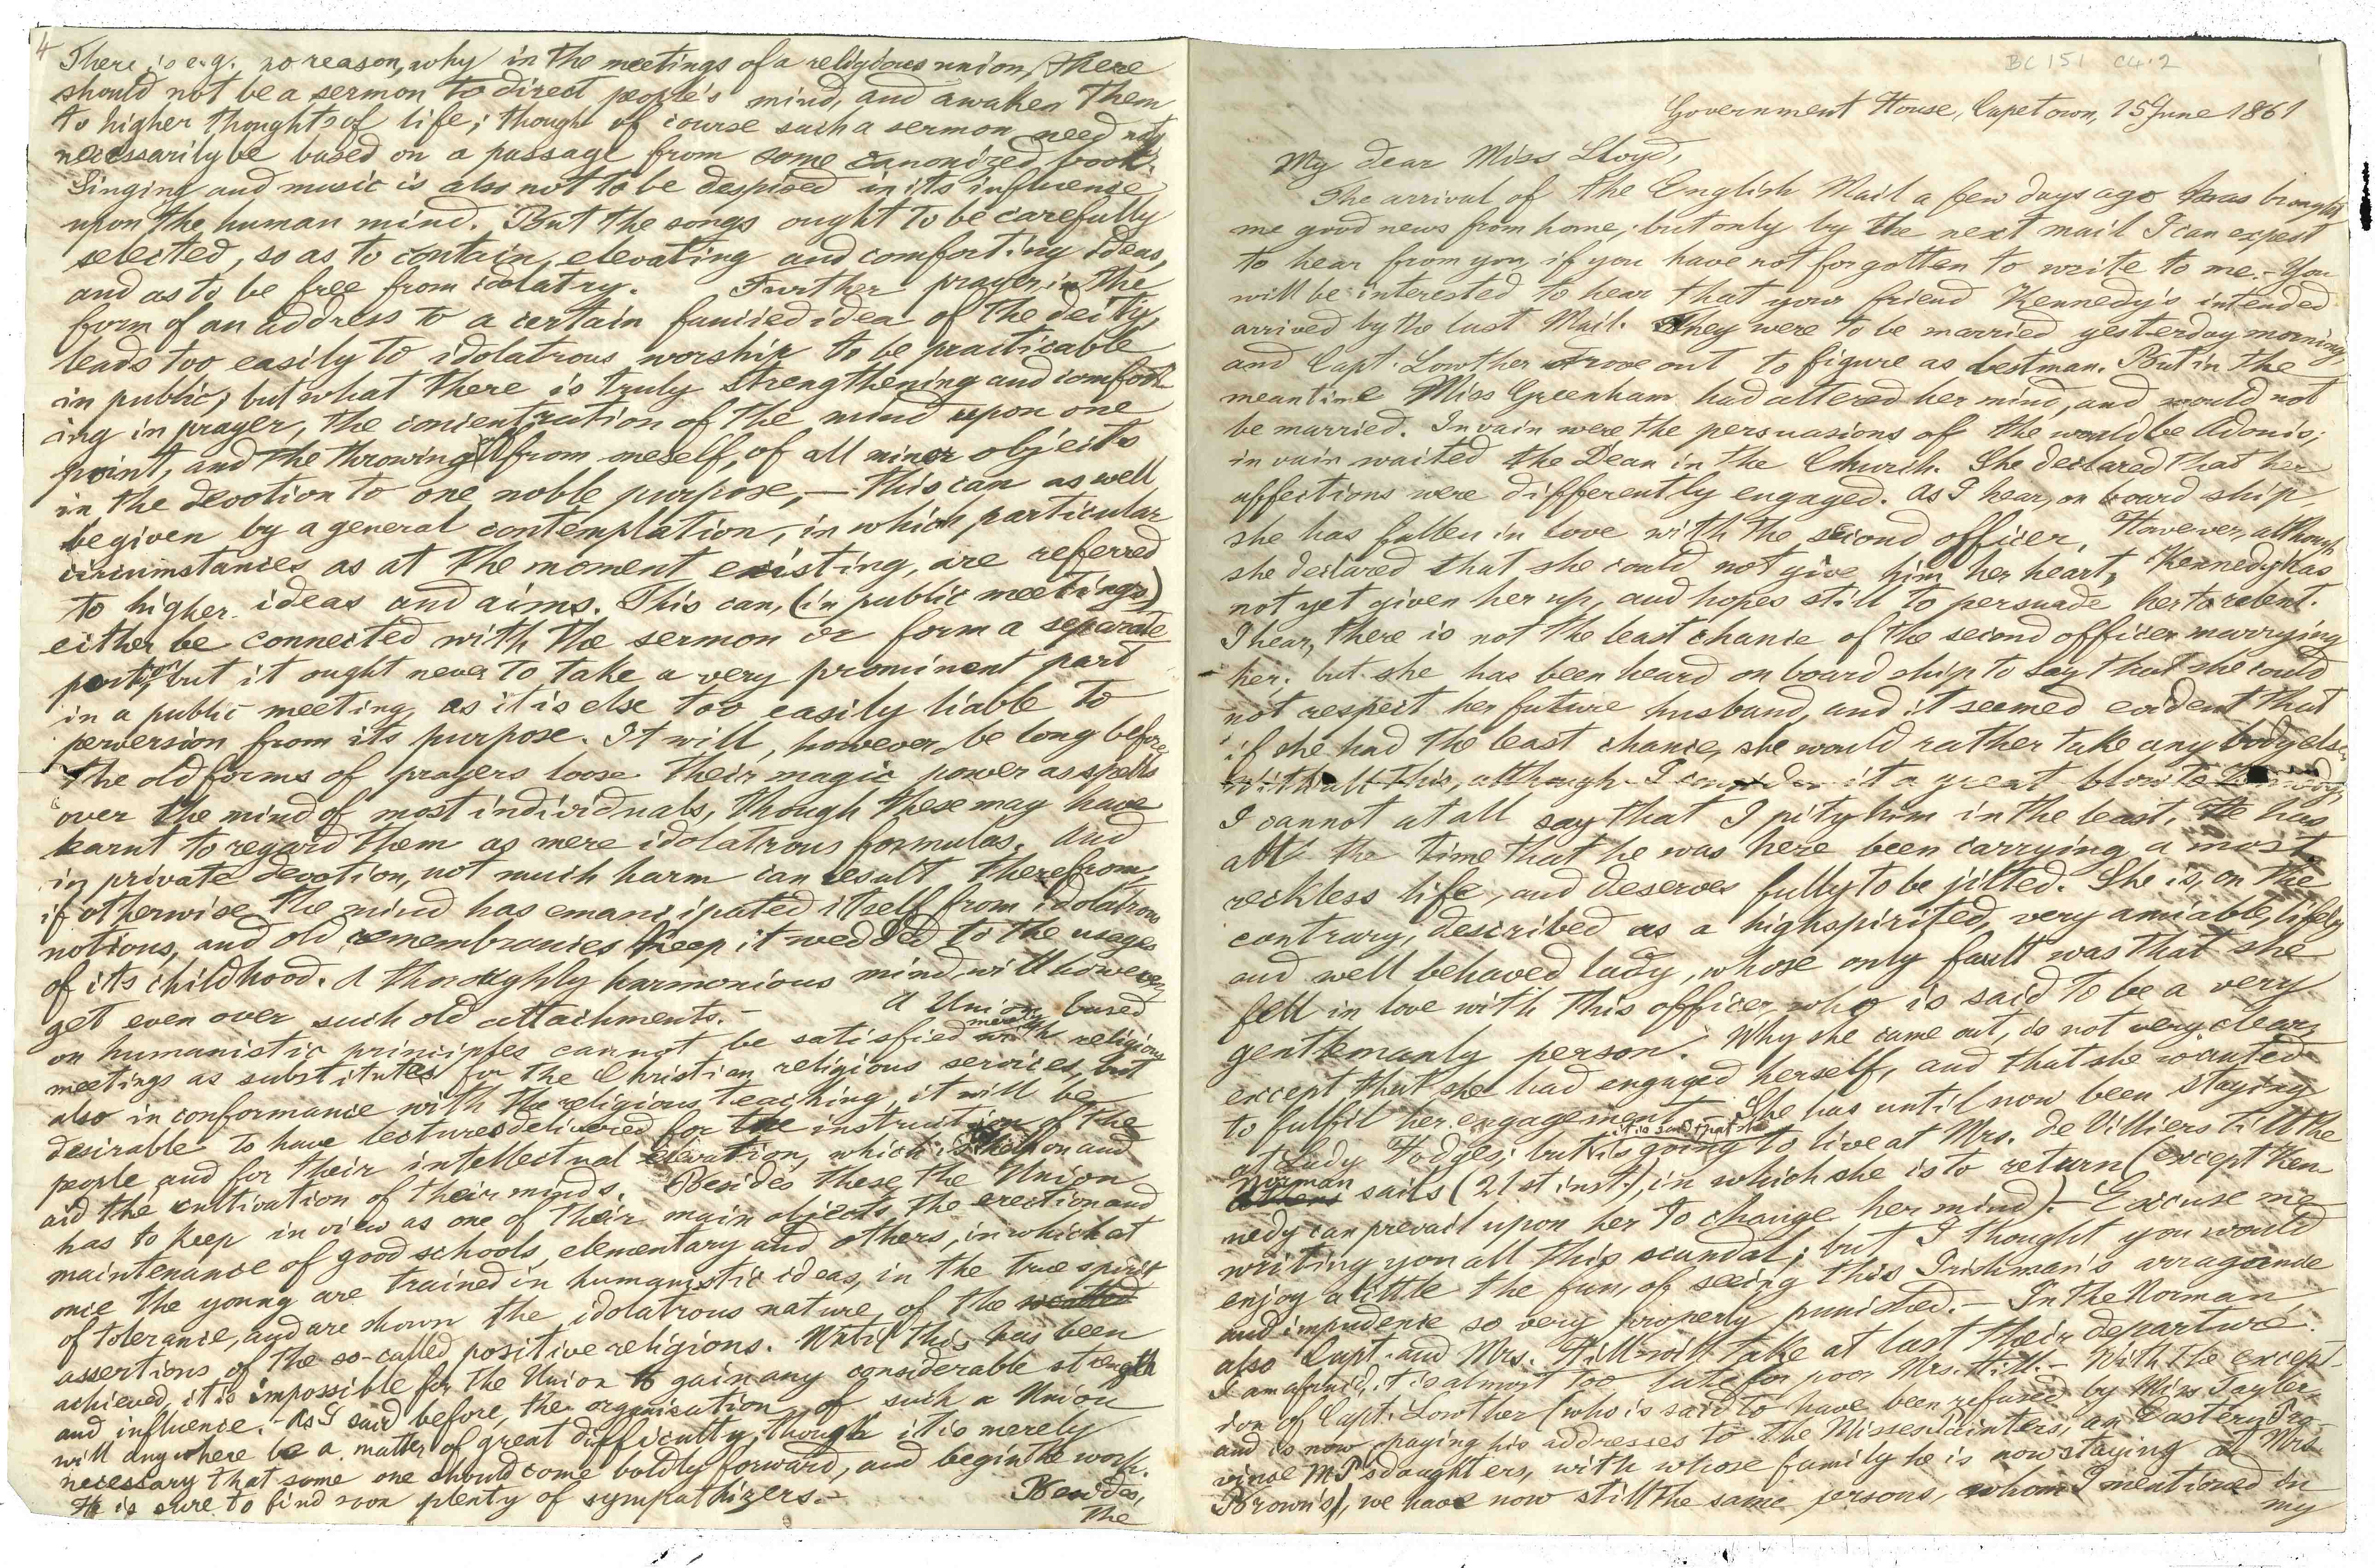 4
There is e.g. no reason, why in the meetings of a religious union, there
should not be a sermon to direct people's mind, and awaken them
to higher thoughts of life; though of course such a sermon need not
necessarily be based on a passage from some canonized book.
Singing and music is also not to be despised in its influence
upon the human mind. But the songs ought to be carefully
selected, so as to contain elevating and comforting ideas,
and as to be free from idolatry. Further prayer in the
form of an address to a certain fancied idea of the deity,
leads too easily to idolatrous worship to be practicable
in public; but what there is truly strengthening and comfort-
ing in prayer, the concentration of the mind upon one
point, and the throwing off from meself, of all minor objects
in the devotion to one noble purpose, — this can as well
be given by a general contemplation, in which particular
circumstances as at the moment existing, are referred
to higher ideas and aims. This can, (in public meetings)
either be connected with the sermon or form a separate
portion, but it ought never to take a very prominent part
in a public meeting, as it is else too easily liable to
perversion from its purpose. It will, however, be long before
the old forms of prayers loose their magic power as spells
over the mind of most individuals, though these may have
learnt to regard them as mere idolatrous formulas. And
in private devotion, not much harm can result therefrom,
if otherwise the mind has emancipated itself from idolatrous
notions, and old remembrances keep it wedded to the usages
of its childhood. A thoroughly harmonious mind will however
get even over such old attachments. — A Union based
on humanistic principles cannot be satisfied merely with religious
meetings as substitutes for the Christian religious services, but
also in conformance with the religious teaching, it will be
desirable to have lectures delivered for the instruction of the
people and for their intellectual elevation, which is to help on and
aid the cultivation of their minds. Besides these the Union
has to keep in view as one of their main objects the erection and
maintenance of good schools, elementary and others, in which at
once the young are trained in humanistic ideas, in the true spirit
of tolerance, and are shown the idolatrous nature of the
assertions of the so-called positive religions. Until this has been
achieved, it is impossible for the Union to gain any considerable strength
and influence. — As I said before, the organisation of such a Union
will anywhere be a matter of great difficulty, though it is merely
necessary that some one should come boldly forward, and begin the work.
He is sure to find soon plenty of sympathizers. — Besides,
the
BC 151 C4.2
1
Government House, Capetown, 15 June 1861
My dear Miss Lloyd,
The arrival of the English Mail a few days ago has brought
me good news from home; but only by the next mail I can expect
to hear from you, if you have not forgotten to write to me. — You
will be interested to hear that your friend Kennedy's intended
arrived by the last Mail. They were to be married yesterday morning,
and Capt. Lowther drove out to figure as bestman. But in the
meantime Miss Greenham had altered her mind, and would not
be married. In vain were the persuasions of the would be Adonis;
in vain waited the Dean in the Church. She declared that her
affections were differently engaged. As I hear, on board ship
she has fallen in love with the second officer. However, although
she declared that she could not give him her heart, Kennedy has
not yet given her up, and hopes still to persuade her to relent.
I hear, there is not the least chance of the second officer marrying
her; but she has been heard on board ship to say that she could
not respect her future husband, and it seemed evident that
if she had the least chance, she would rather take any body else.
With all this, although I consider it a great blow to Kennedy,
I cannot at all say that I pity him in the least. He has
all the time that he was here been carrying a most
reckless life, and deserves fully to be jilted. She is, on the
contrary, described as a highspirited, very amiable, lifely
and well behaved lady, whose only fault was that she
fell in love with this officer, who is said to be a very
gentlemanly person. Why she came out, is not very clear,
except that she had engaged herself, and that she wanted
to fulfil her engagement. — She has until now been staying
at Lady Hodges; but it is said that she is going to live at Mrs. de Villiers till the
Norman sails (21st inst.), in which she is to return (except Ken
nedy can prevail upon her to change her mind). — Excuse me
writing you all this scandal; but I thought you would
enjoy a little the fun, of seeing this Irishman's arrogance
and impudence so very properly punished. — In the Norman
also Capt. and Mrs. Hill will take at last their departure.
I am afraid, it is almost too late for poor Mrs. Hill. — With the except-
ion of Capt. Lowther (who is said to have been refused by Miss Tayler
and is now paying his addresses to the Misses Painters, an Eastern Pro-
vince M.P.'s daughters, with whose family he is now staying at Mrs.
Brown's), we have now still the same persons, whom I mentioned in
my